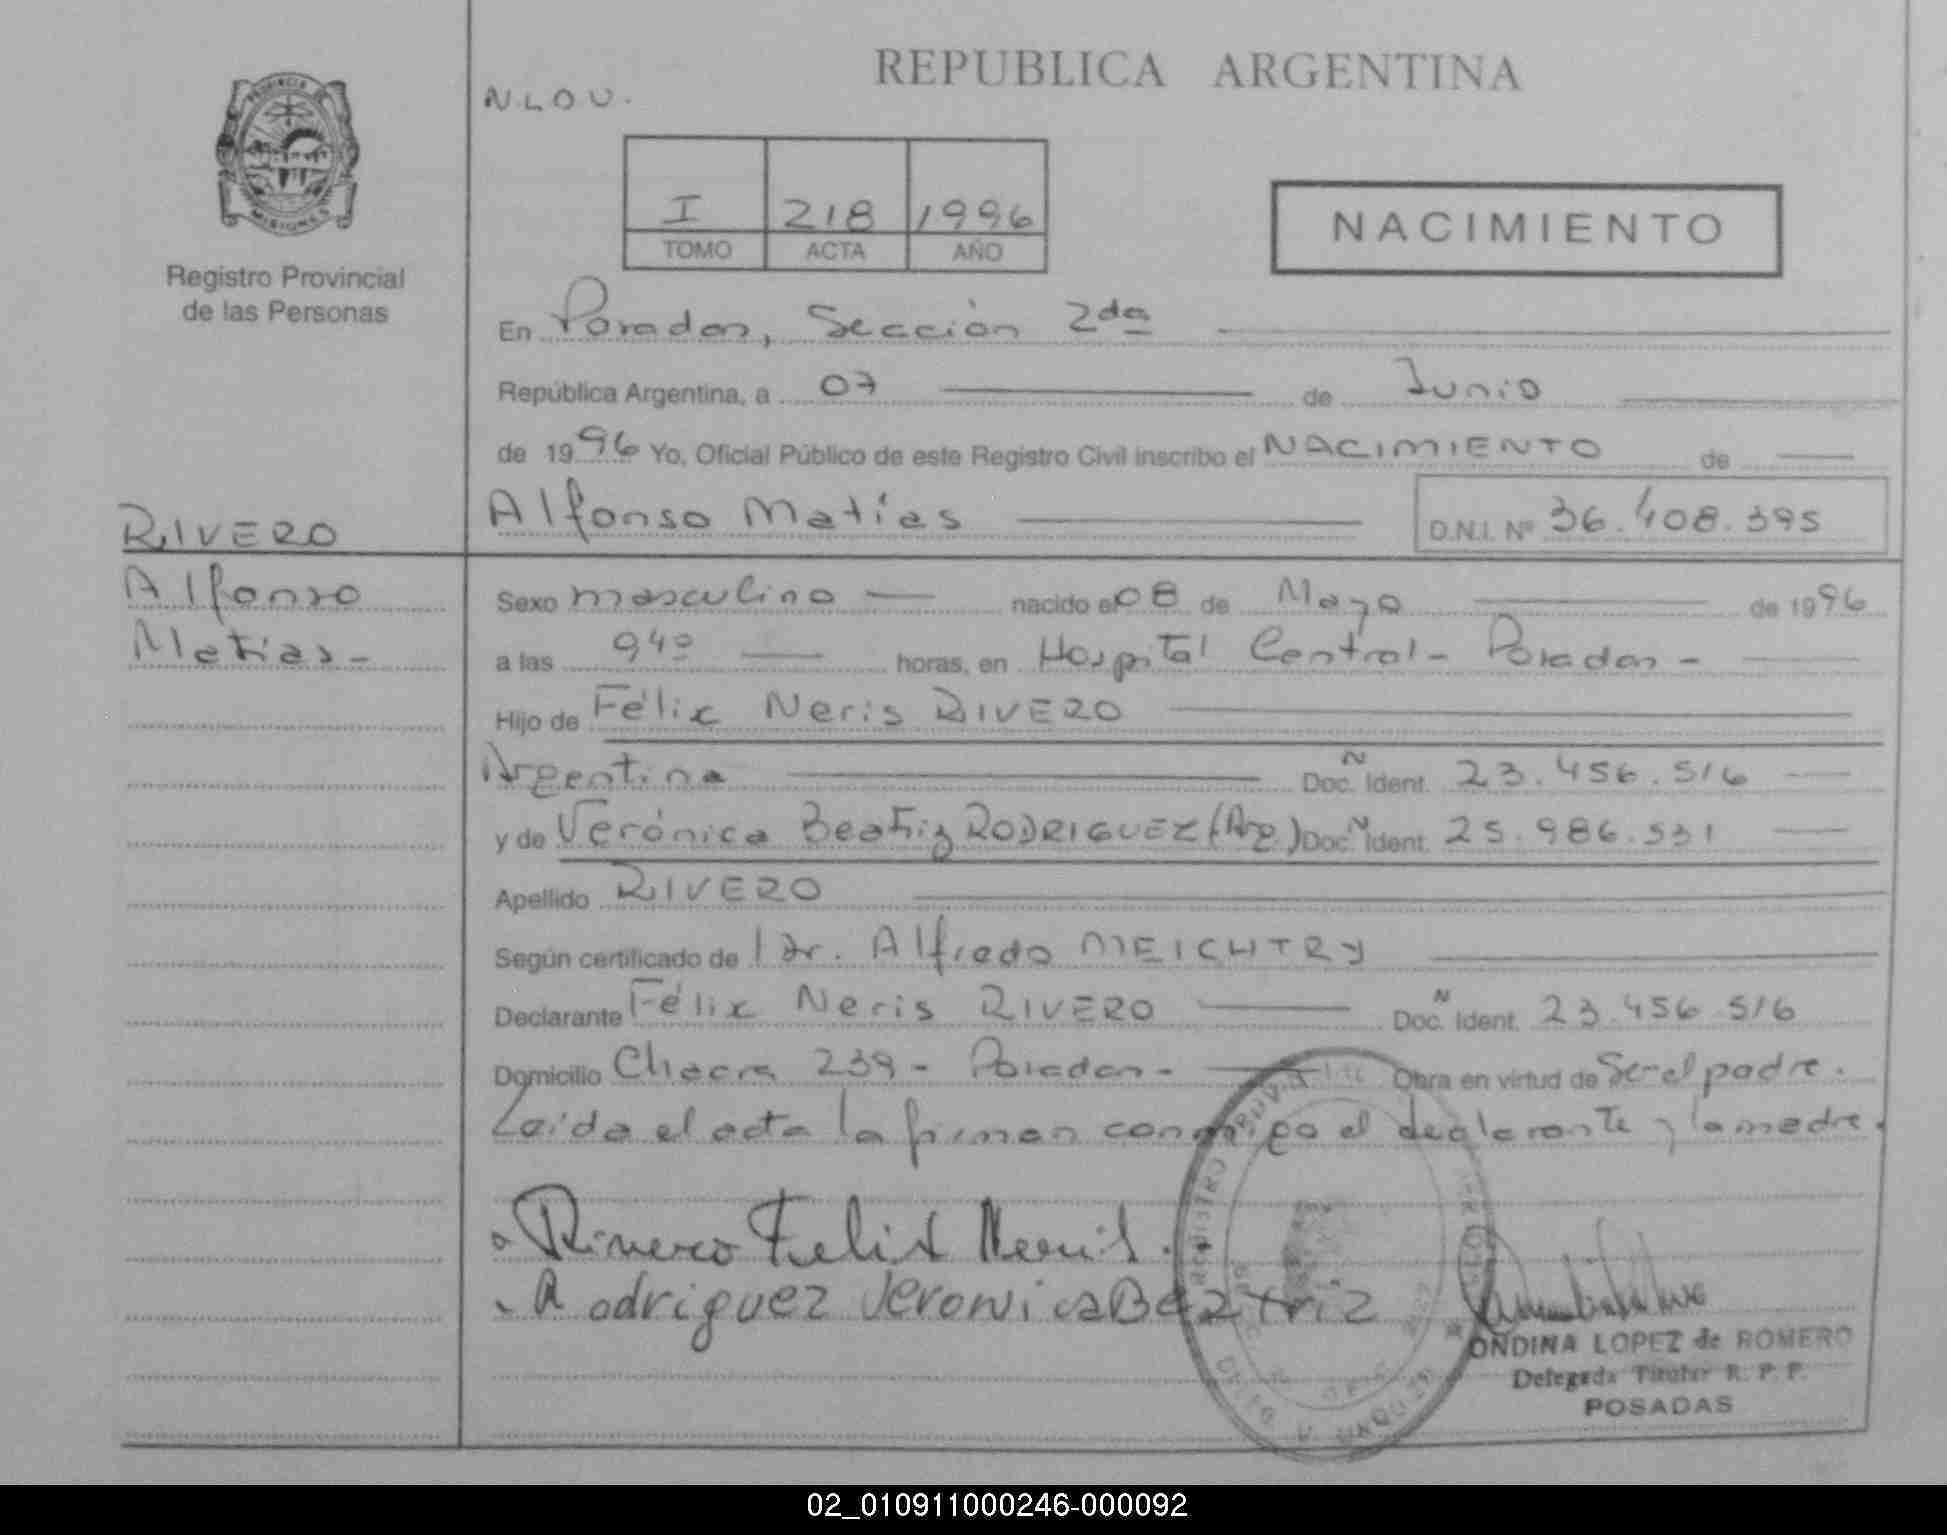 REPUBLICA ARGENTINA
PROVINCIA DE
MISIONES
Registro Provincial
de las Personas
N.L.O.U.
I 218 1996
TOMO ACTA AÑO
NACIMIENTO
En Posadas, Sección 2da
República Argentina, a 07 de Junio
de 1996 Yo, Oficial Público de este Registro Civil inscribo el NACIMIENTO de
RIVERO
Alfonso Matías D.N.I. Nº 36.408.395
Alfonso
Matías-
Sexo masculino nacido el 08 de Mayo de 1996
a las 9 40 horas, en Hospital Central - Posadas -
Hijo de Félix Neris RIVERO
Argentina Doc. N Ident. 23.456.516
y de Verónica Beatriz RODRIGUEZ (Arg.) Doc. N Ident. 25.986.531
Apellido RIVERO
Según certificado del Dr. Alfredo MEICHTRY
Declarante Félix Neris RIVERO Doc. N Ident. 23.456.516
Domicilio Chacra 239 - Posadas - Obra en virtud de Ser el padre.
Leída el acta la firman conmigo el declarante y la madre.
Rivero Felix Neris.
Rodriguez Veronica Beatriz
ONDINA LOPEZ de ROMERO
Delegada Titular R. P. P.
POSADAS
02_010911000246-000092